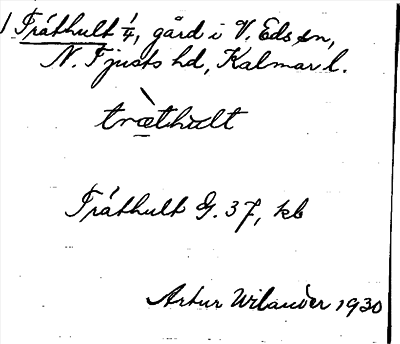 Tråthult 1/4, gård i V. Eds sn,
N. Tjusts hd, Kalmar l.
træ̀thult
Tråthult G. 37, kb
Artur Wilander 1930